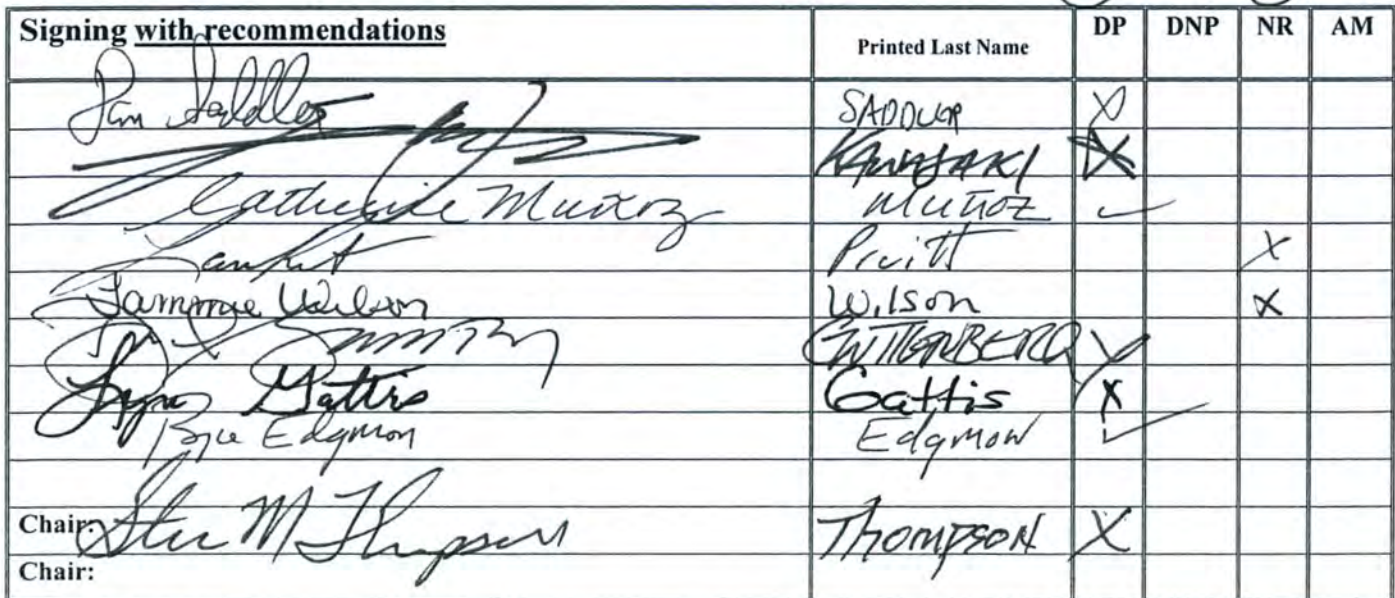 Signing with recommendations Printed Last Name DP DNP NR AM
Dan Saddler SADDLER X
KAWASAKI X
Cathy Muñoz Muñoz ✓
Pruitt X
Tammie Wilson Wilson X
GUTTENBERG X
Lynn Gattis Gattis X
Bryce Edgmon Edgmon ✓
Chair: Steve M Thompson Thompson X
Chair: